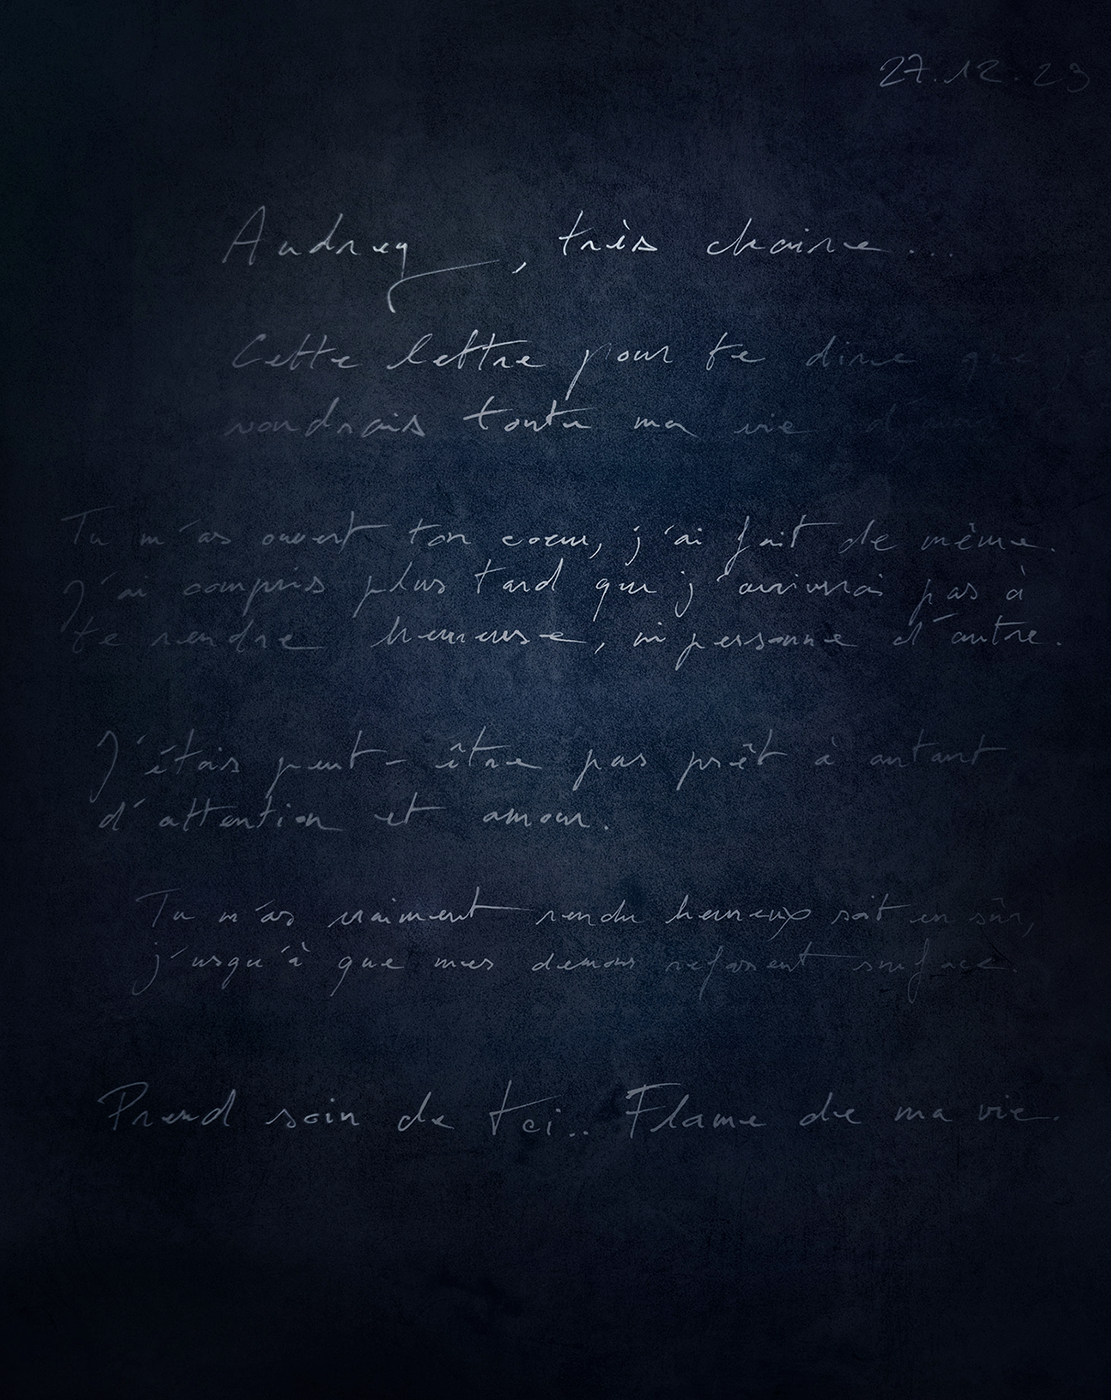 27.12.23
Audrey, très chaire...
Cette lettre pour te dire que je
voudrais toute ma vie
Tu m'as ouvert ton cœur, j'ai fait de même.
J'ai compris plus tard que j'arriverai pas à
te rendre heureuse, ni personne d'autre.
J'étais peut-être pas prêt à autant
d'attention et amour.
Tu m'as vraiment rendu heureux soit en sûr,
j'usqu'à que mes demons refassent surface.
Prend soin de toi.. Flame de ma vie.